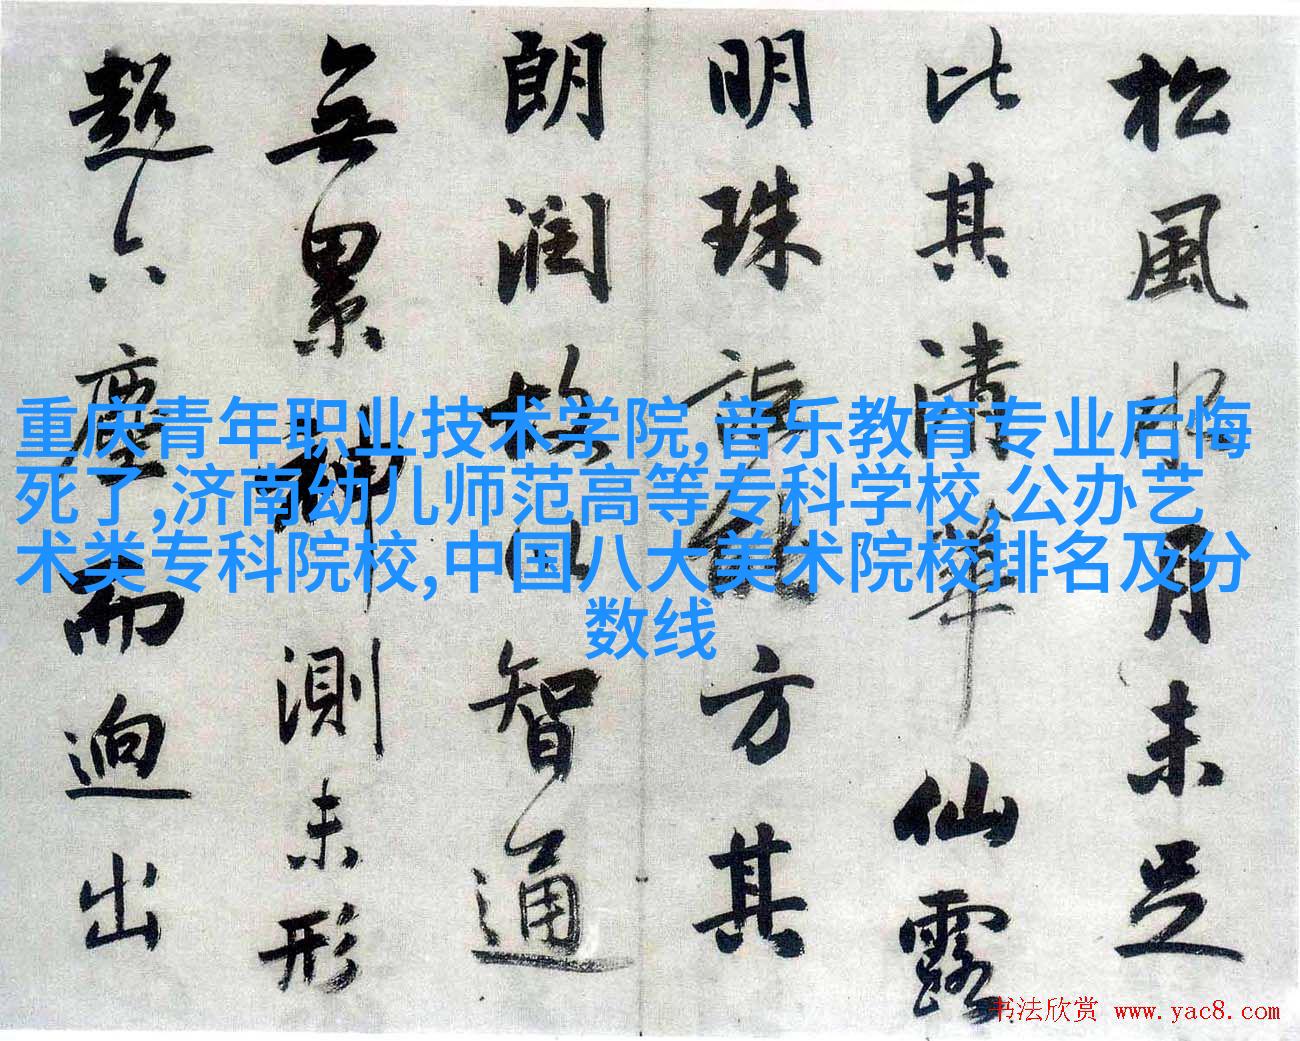 松風水月未足
比其清華仙露
明珠詎能方其
朗潤故以智通
無累神測未形
超六塵而迥出
重庆青年职业技术学院,音乐教育专业后悔
死了,济南幼儿师范高等专科学校,公办艺
术类专科院校,中国八大美术院校排名及分
数线
书法欣赏 www.yac8.com